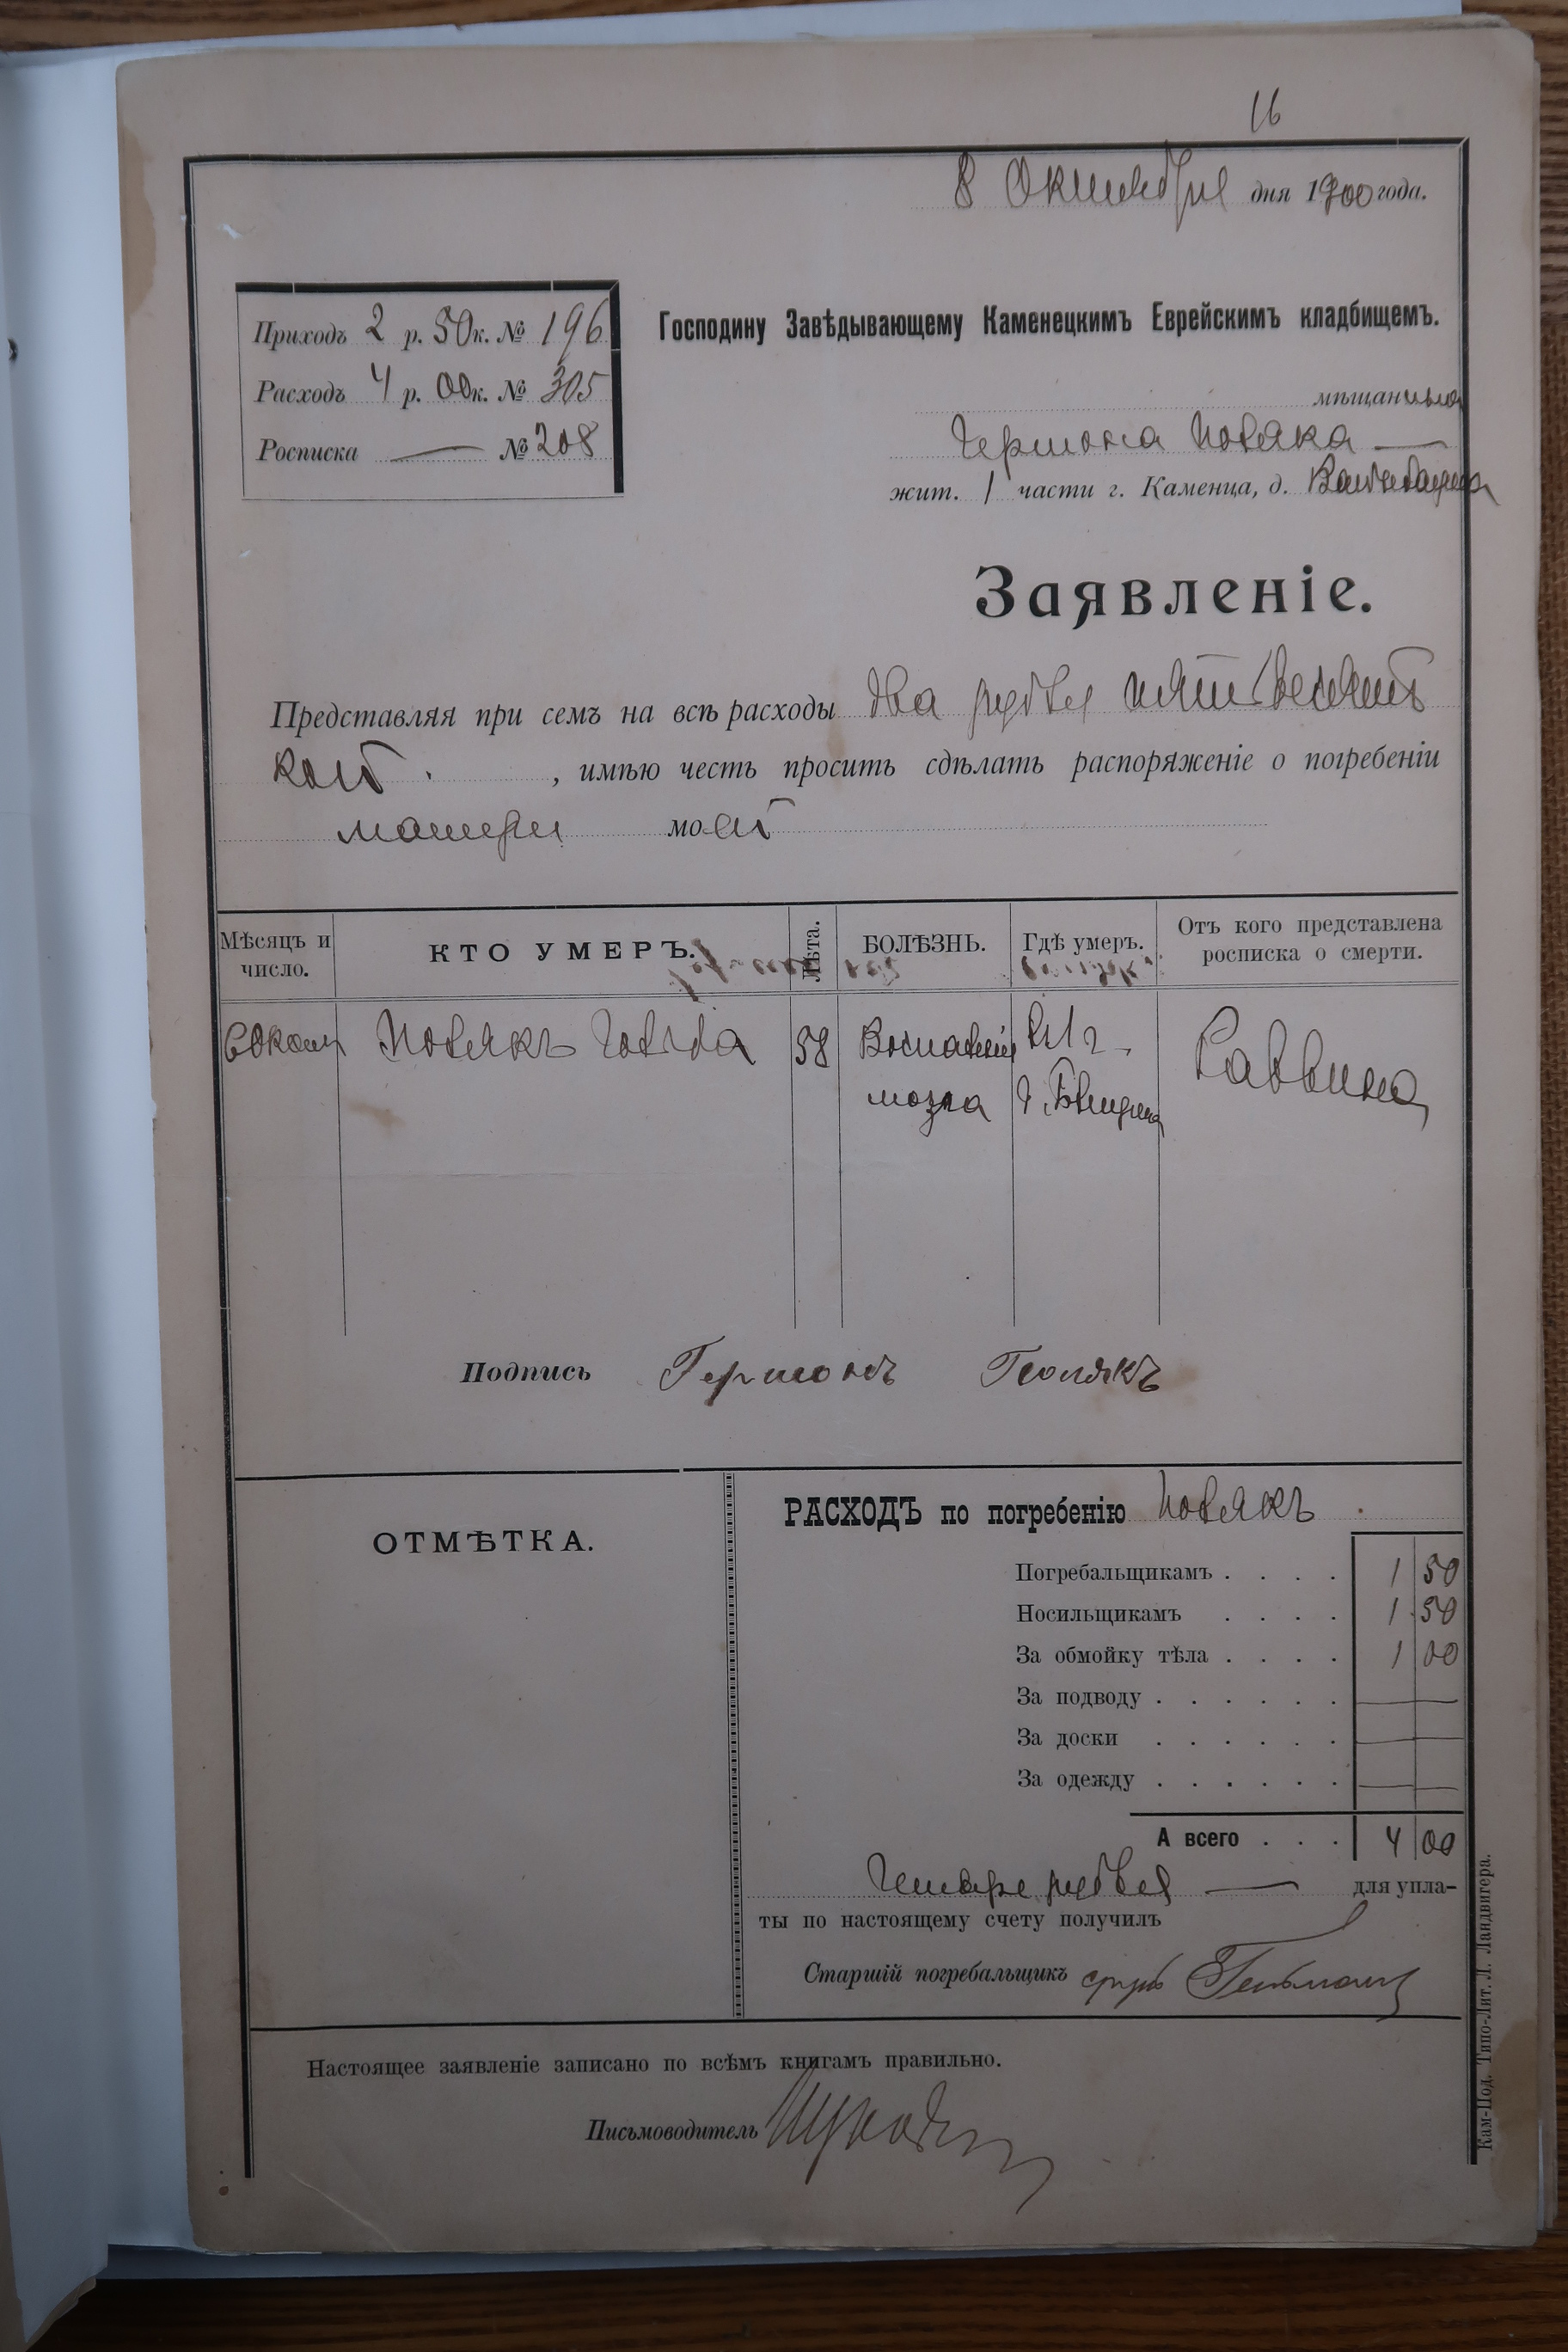 16
8 Октября дня 1900 года.
Приходъ 2 р. 50 к. № 196
Расходъ 4 р. 00 к. № 305
Росписка — № 208
Господину Завѣдывающему Каменецкимъ Еврейскимъ кладбищемъ.
мѣщанина
Гершона Поляка —
жит. 1 части г. Каменца, д.
Заявленіе.
Представляя при семъ на всѣ расходы два рубля пятьдесятъ
коп. , имѣю честь просить сдѣлать распоряженіе о погребеніи
матери моей
Мѣсяцъ и число.
КТО УМЕРЪ.
Лѣта.
БОЛѢЗНЬ.
Гдѣ умеръ.
Отъ кого представлена росписка о смерти.
Полякъ Голда 58 Воспаленіе Раввина
мозга
Подпись Гершонъ Полякъ
ОТМѢТКА.
РАСХОДЪ по погребенію Полякъ
Погребальщикамъ . . . . 1 50
Носильщикамъ . . . . 1 50
За обмойку тѣла . . . . 1 00
За подводу . . . . . . —
За доски . . . . . . —
За одежду . . . . . . —
А всего . . . 4 00
Четыре рубля — для упла-
ты по настоящему счету получилъ
Старшій погребальщикъ
Настоящее заявленіе записано по всѣмъ книгамъ правильно.
Письмоводитель
Кам-Под. Типо-Лит. Л. Ландвигера.